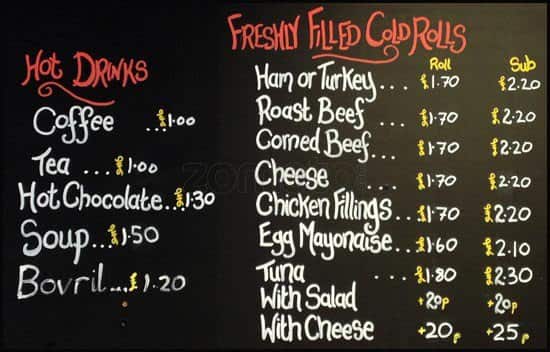 Hot Drinks
Coffee ...£1.00
Tea ... £1.00
Hot Chocolate...£1.30
Soup...£1.50
Bovril....£1.20
Freshly Filled Cold Rolls
Roll Sub
Ham or Turkey... £1.70 £2.20
Roast Beef ... £1.70 £2.20
Corned Beef... £1.70 £2.20
Cheese ... £1.70 £2.20
Chicken Fillings... £1.70 £2.20
Egg Mayonaise... £1.60 £2.10
Tuna ... £1.80 £2.30
With Salad +20p +20p
With Cheese +20p +25p